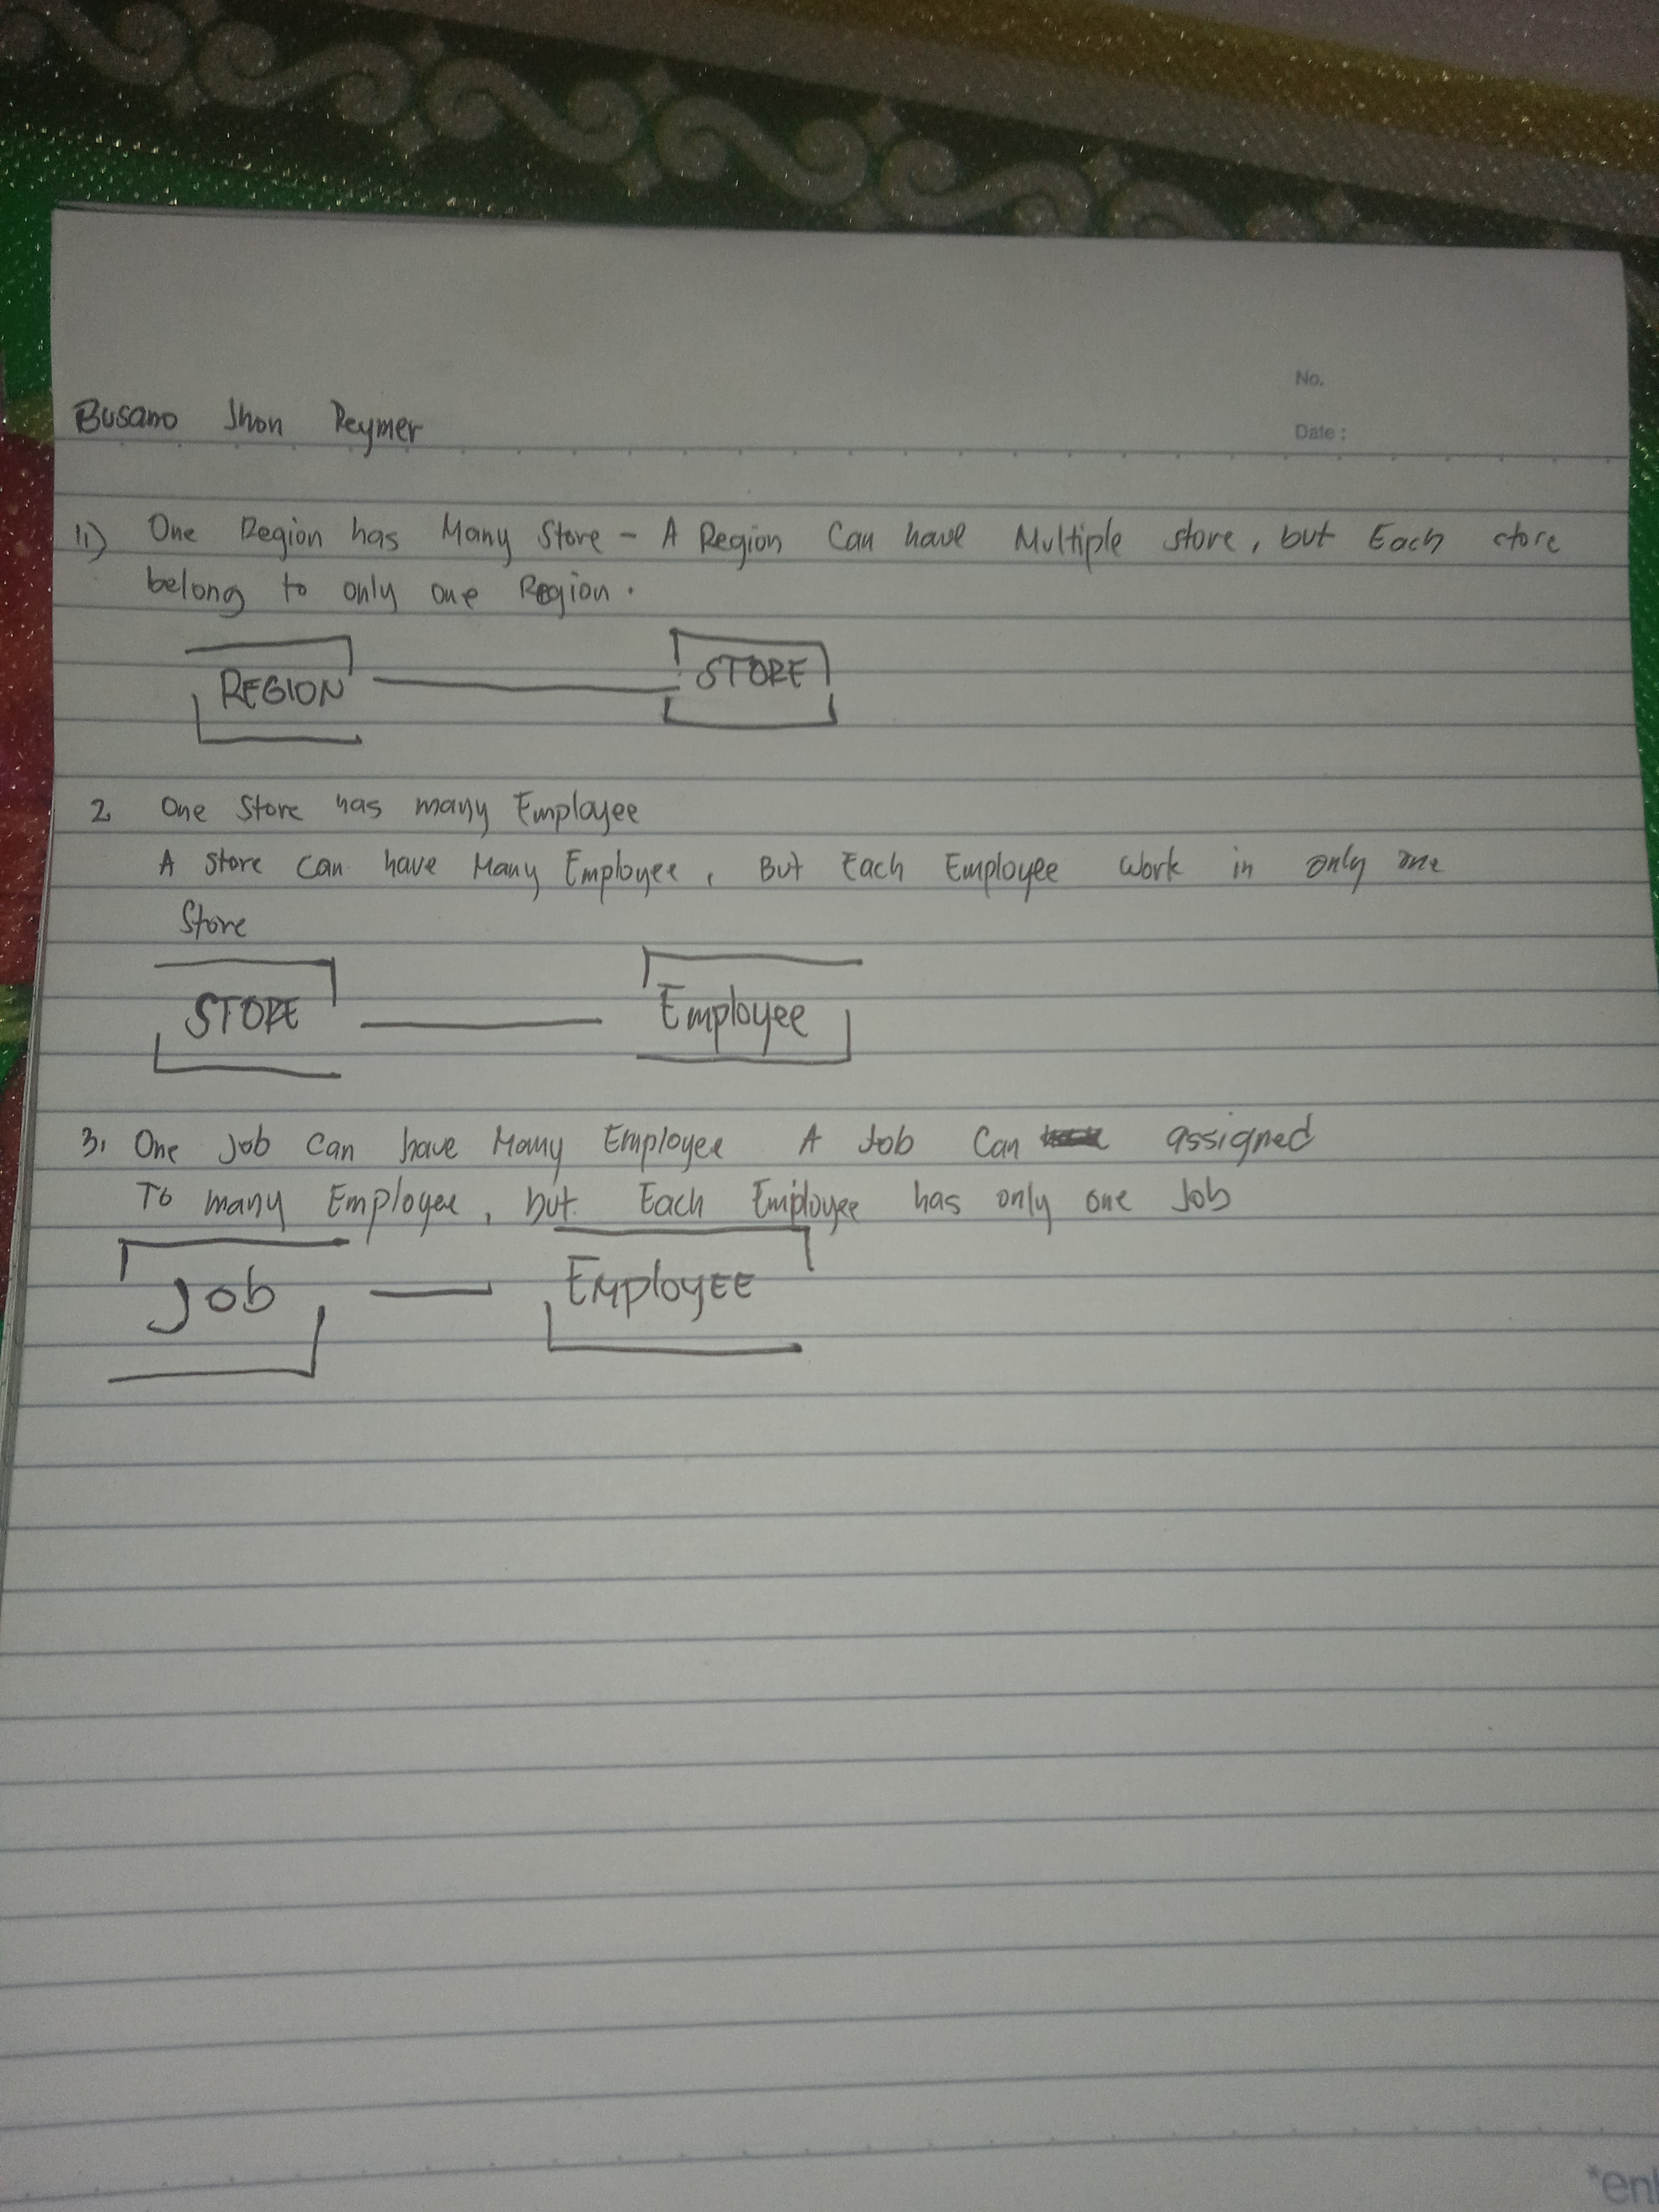 No.
Busano Jhon Reymer
Date :
1) One Region has Many Store - A Region Can have Multiple store, but Each store
belong to only one Region.
REGION STORE
2. One Store has many Employee
A store can have Many Employee, But Each Employee work in only one
Store
STORE Employee
3. One Job Can have Many Employee A Job Can assigned
To many Employee, but Each Employee has only one Job
Job EmployEE